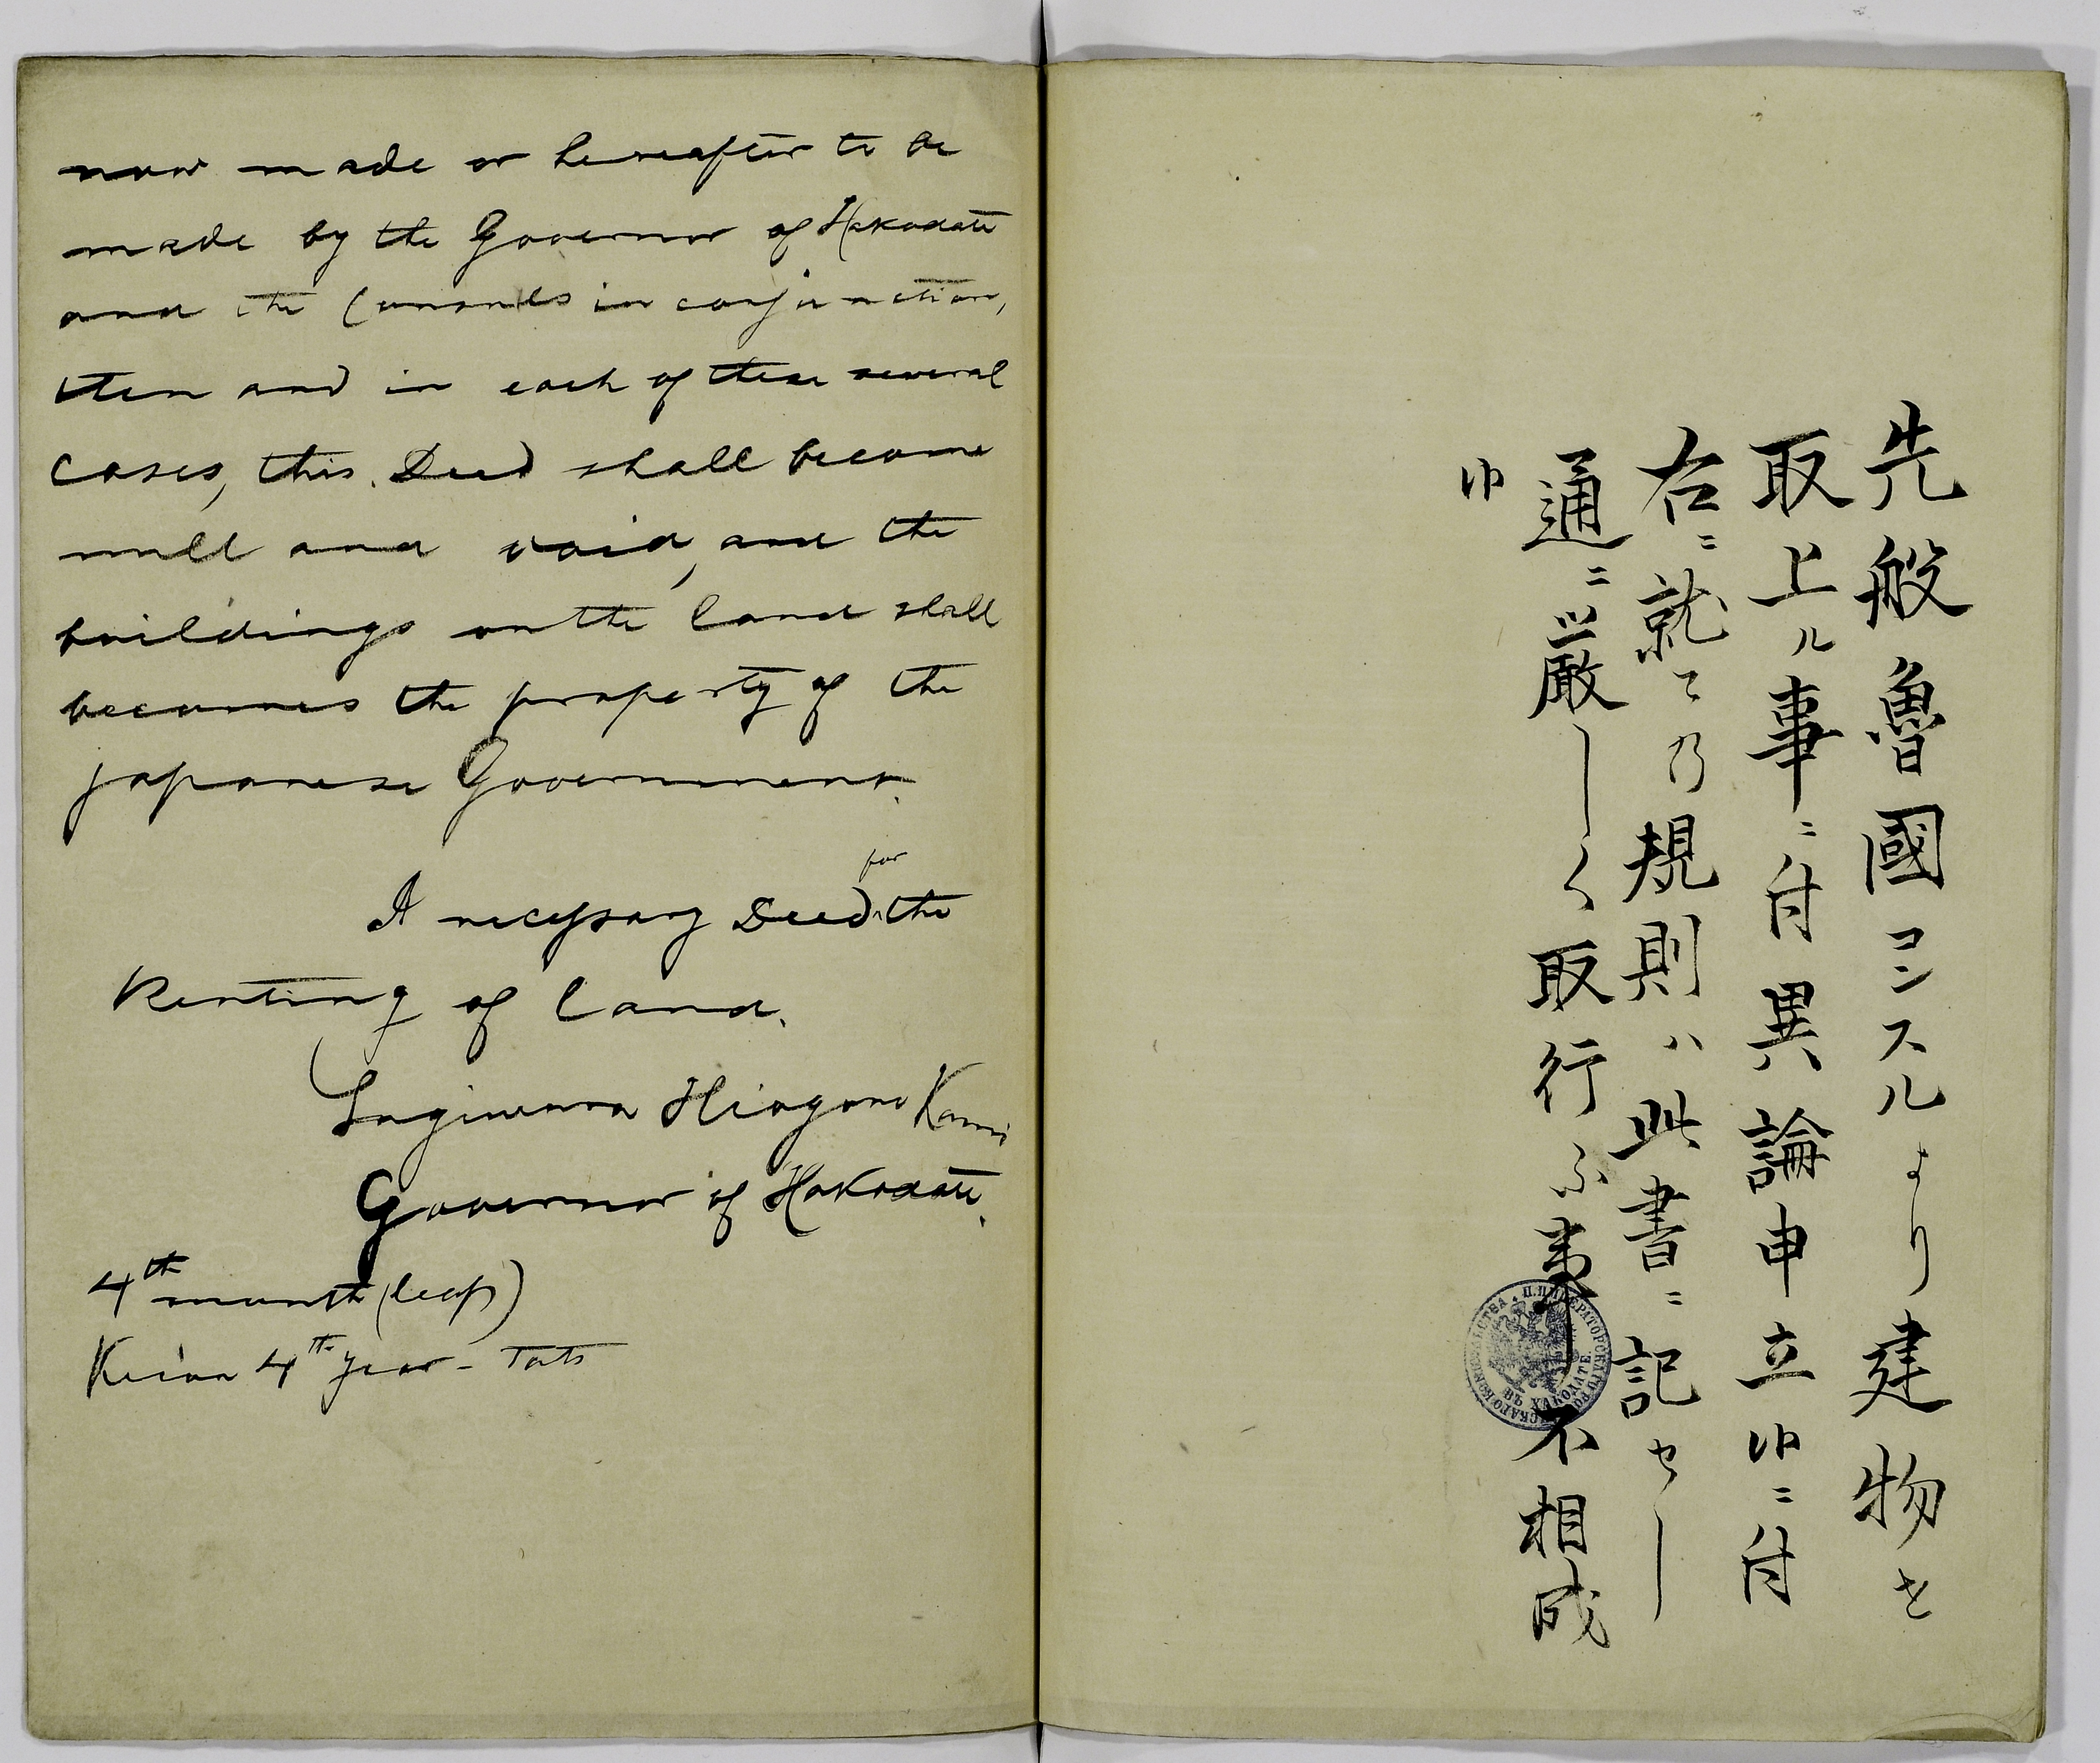 now made or hereafter to be
made by the Governor of Hakodate
and the Consuls in conjunction,
then and in each of these several
cases, this Deed shall become
null and void, and the
buildings on the land shall
becomes the property of the
japanese Government.
A necessary Deed for the
Renting of land.
Sugiura Hiogono Kami
Governor of Hakodate.
4th month (leap)
Keion 4th year - Tats
先般魯國コンスルより建物を
取上ル事ニ付異論申立候ニ付
右ニ就ての規則ハ此書ニ記せし
通ニ厳しく取行ふ事不相成
候